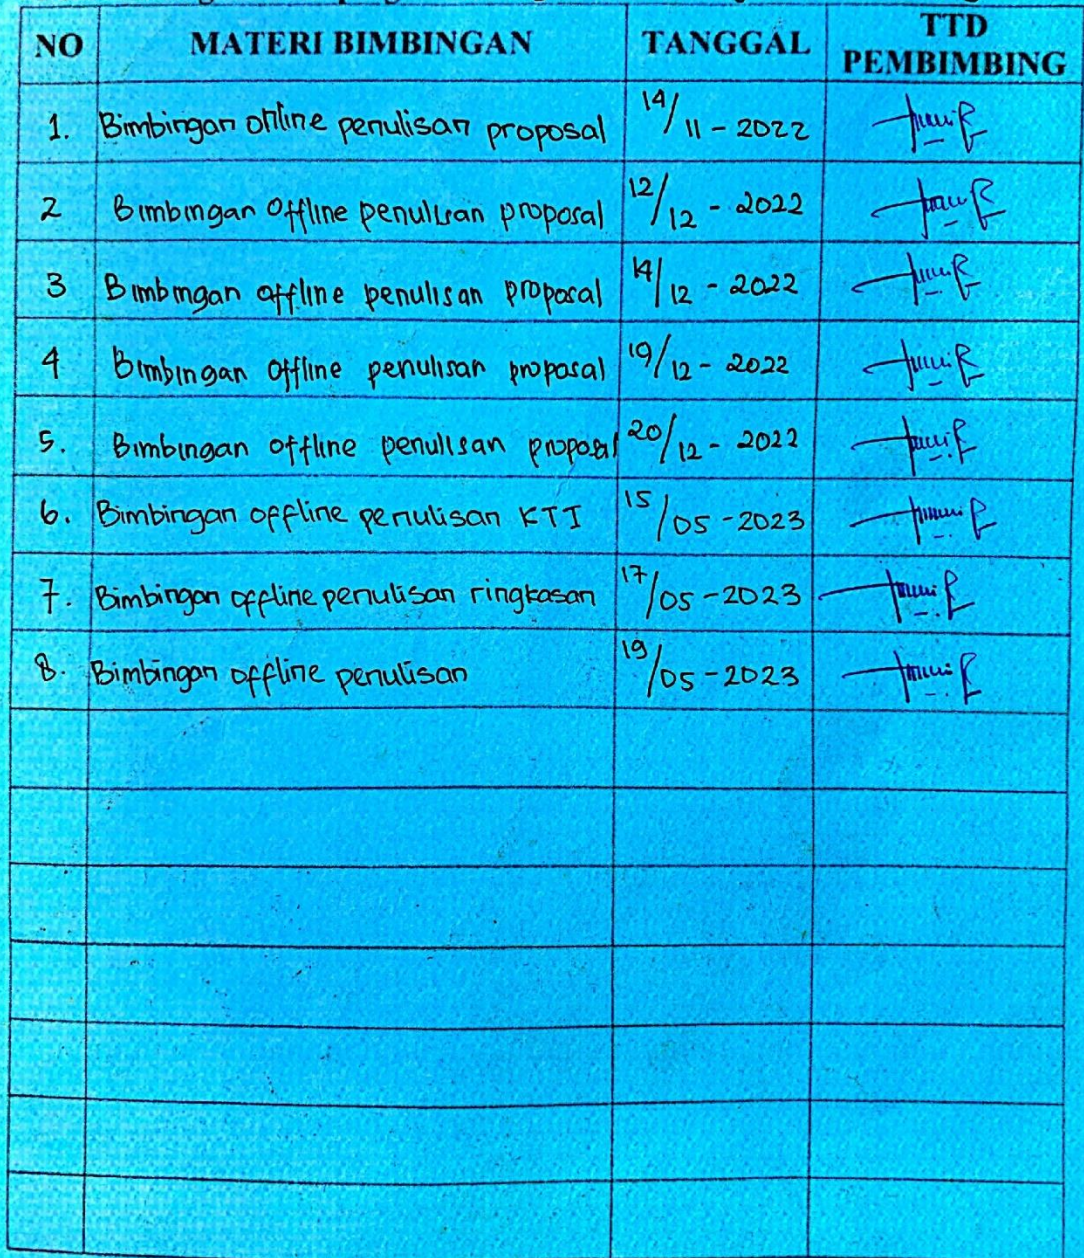 NO MATERI BIMBINGAN TANGGAL TTD
PEMBIMBING
1. Bimbingan penulisan proposal 14/11-2022
2 Bimbingan Offline penulisan proposal 12/12-2022
3 Bimbingan offline penulisan proposal 14/12-2022
4 Bimbingan Offline penulisan proposal 19/12-2022
5. Bimbingan offline penulisan proposal 20/12-2022
6. Bimbingan offline penulisan KTI 15/05-2023
7. Bimbingan offline penulisan ringkasan 17/05-2023
8. Bimbingan offline penulisan 19/05-2023